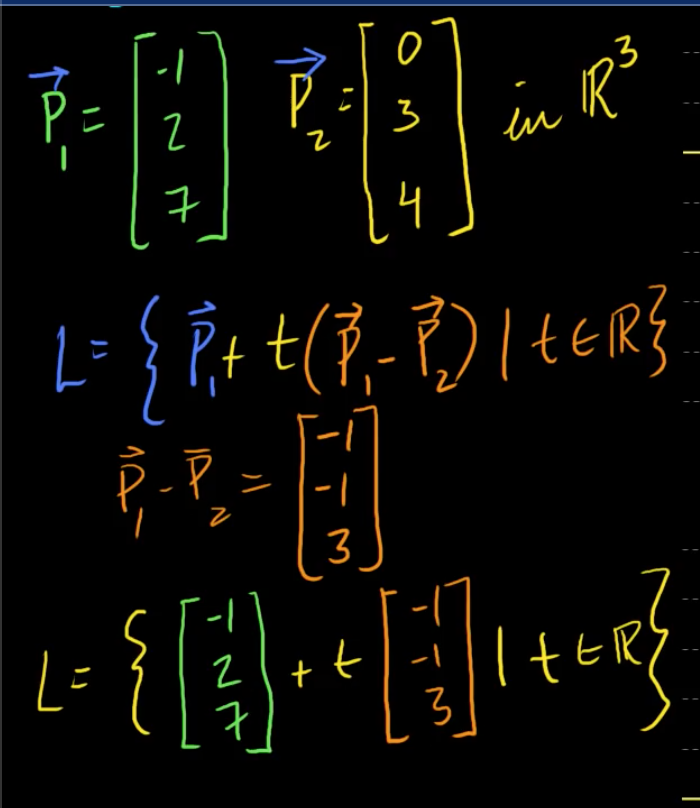 P⃗₁ = [-1 2 7] P⃗₂ = [0 3 4] in ℝ³
L = { P⃗₁ + t(P⃗₁ - P⃗₂) | t ∈ ℝ }
P⃗₁ - P̄₂ = [-1 -1 3]
L = { [-1 2 7] + t [-1 -1 3] | t ∈ ℝ }